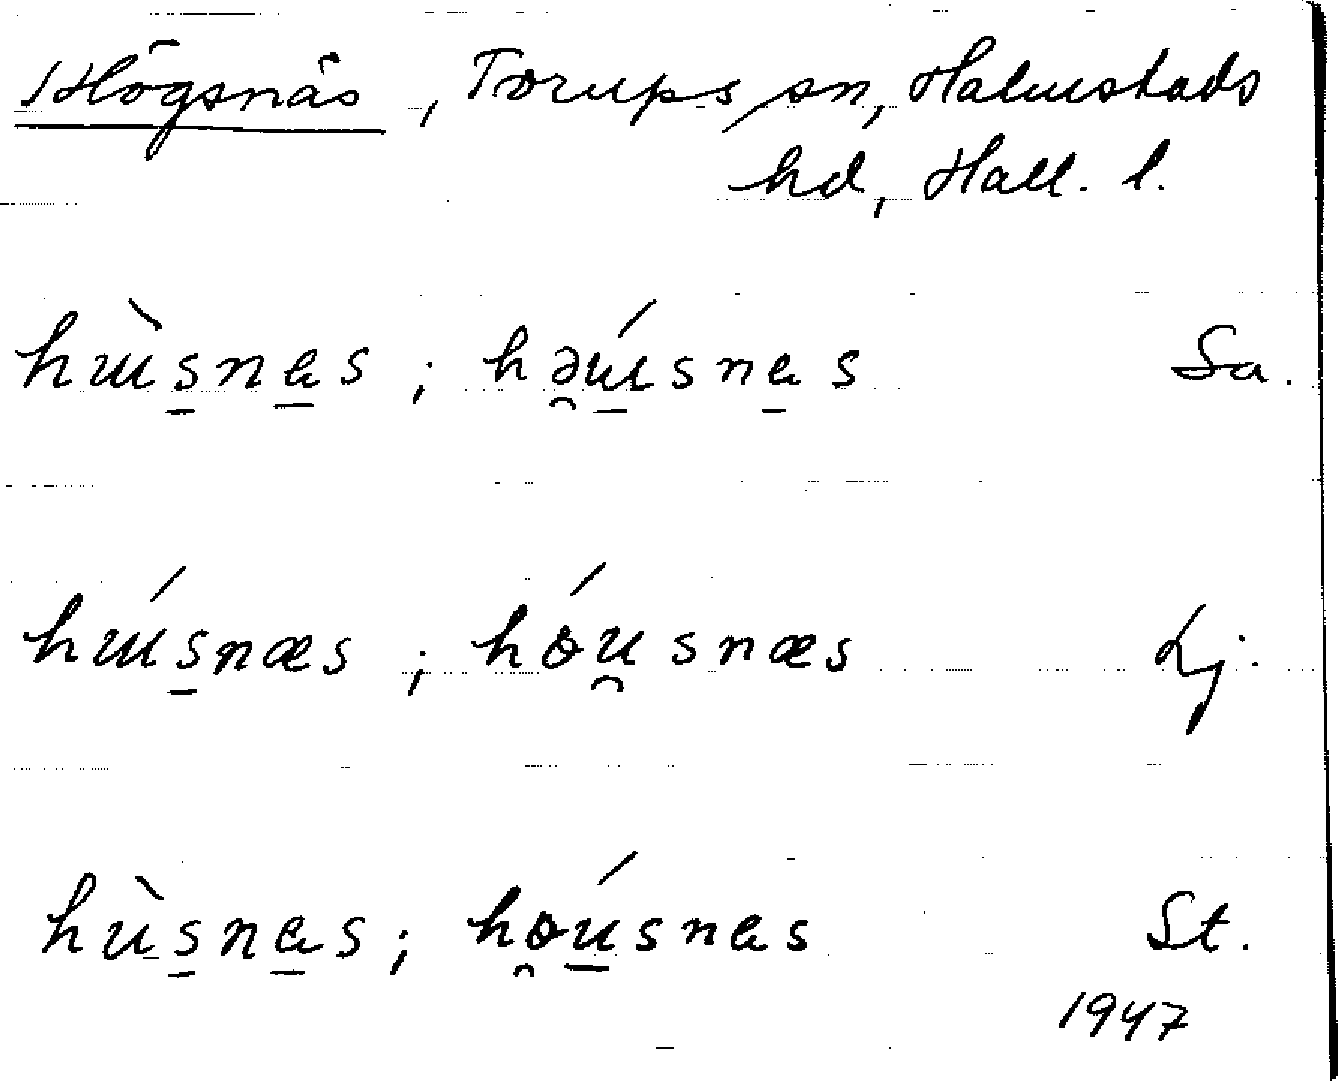 Högsnäs, Torups sn, Halmstads
hd, Hall. l.
hɯ̀s̱næ̱s ; hə̯ɯ̱́snæ̱s Sa.
hɯ́s̱næs ; hóu̯snæs Lj.
hùs̱næ̱s ; ho̯ú̱snæs St.
1947